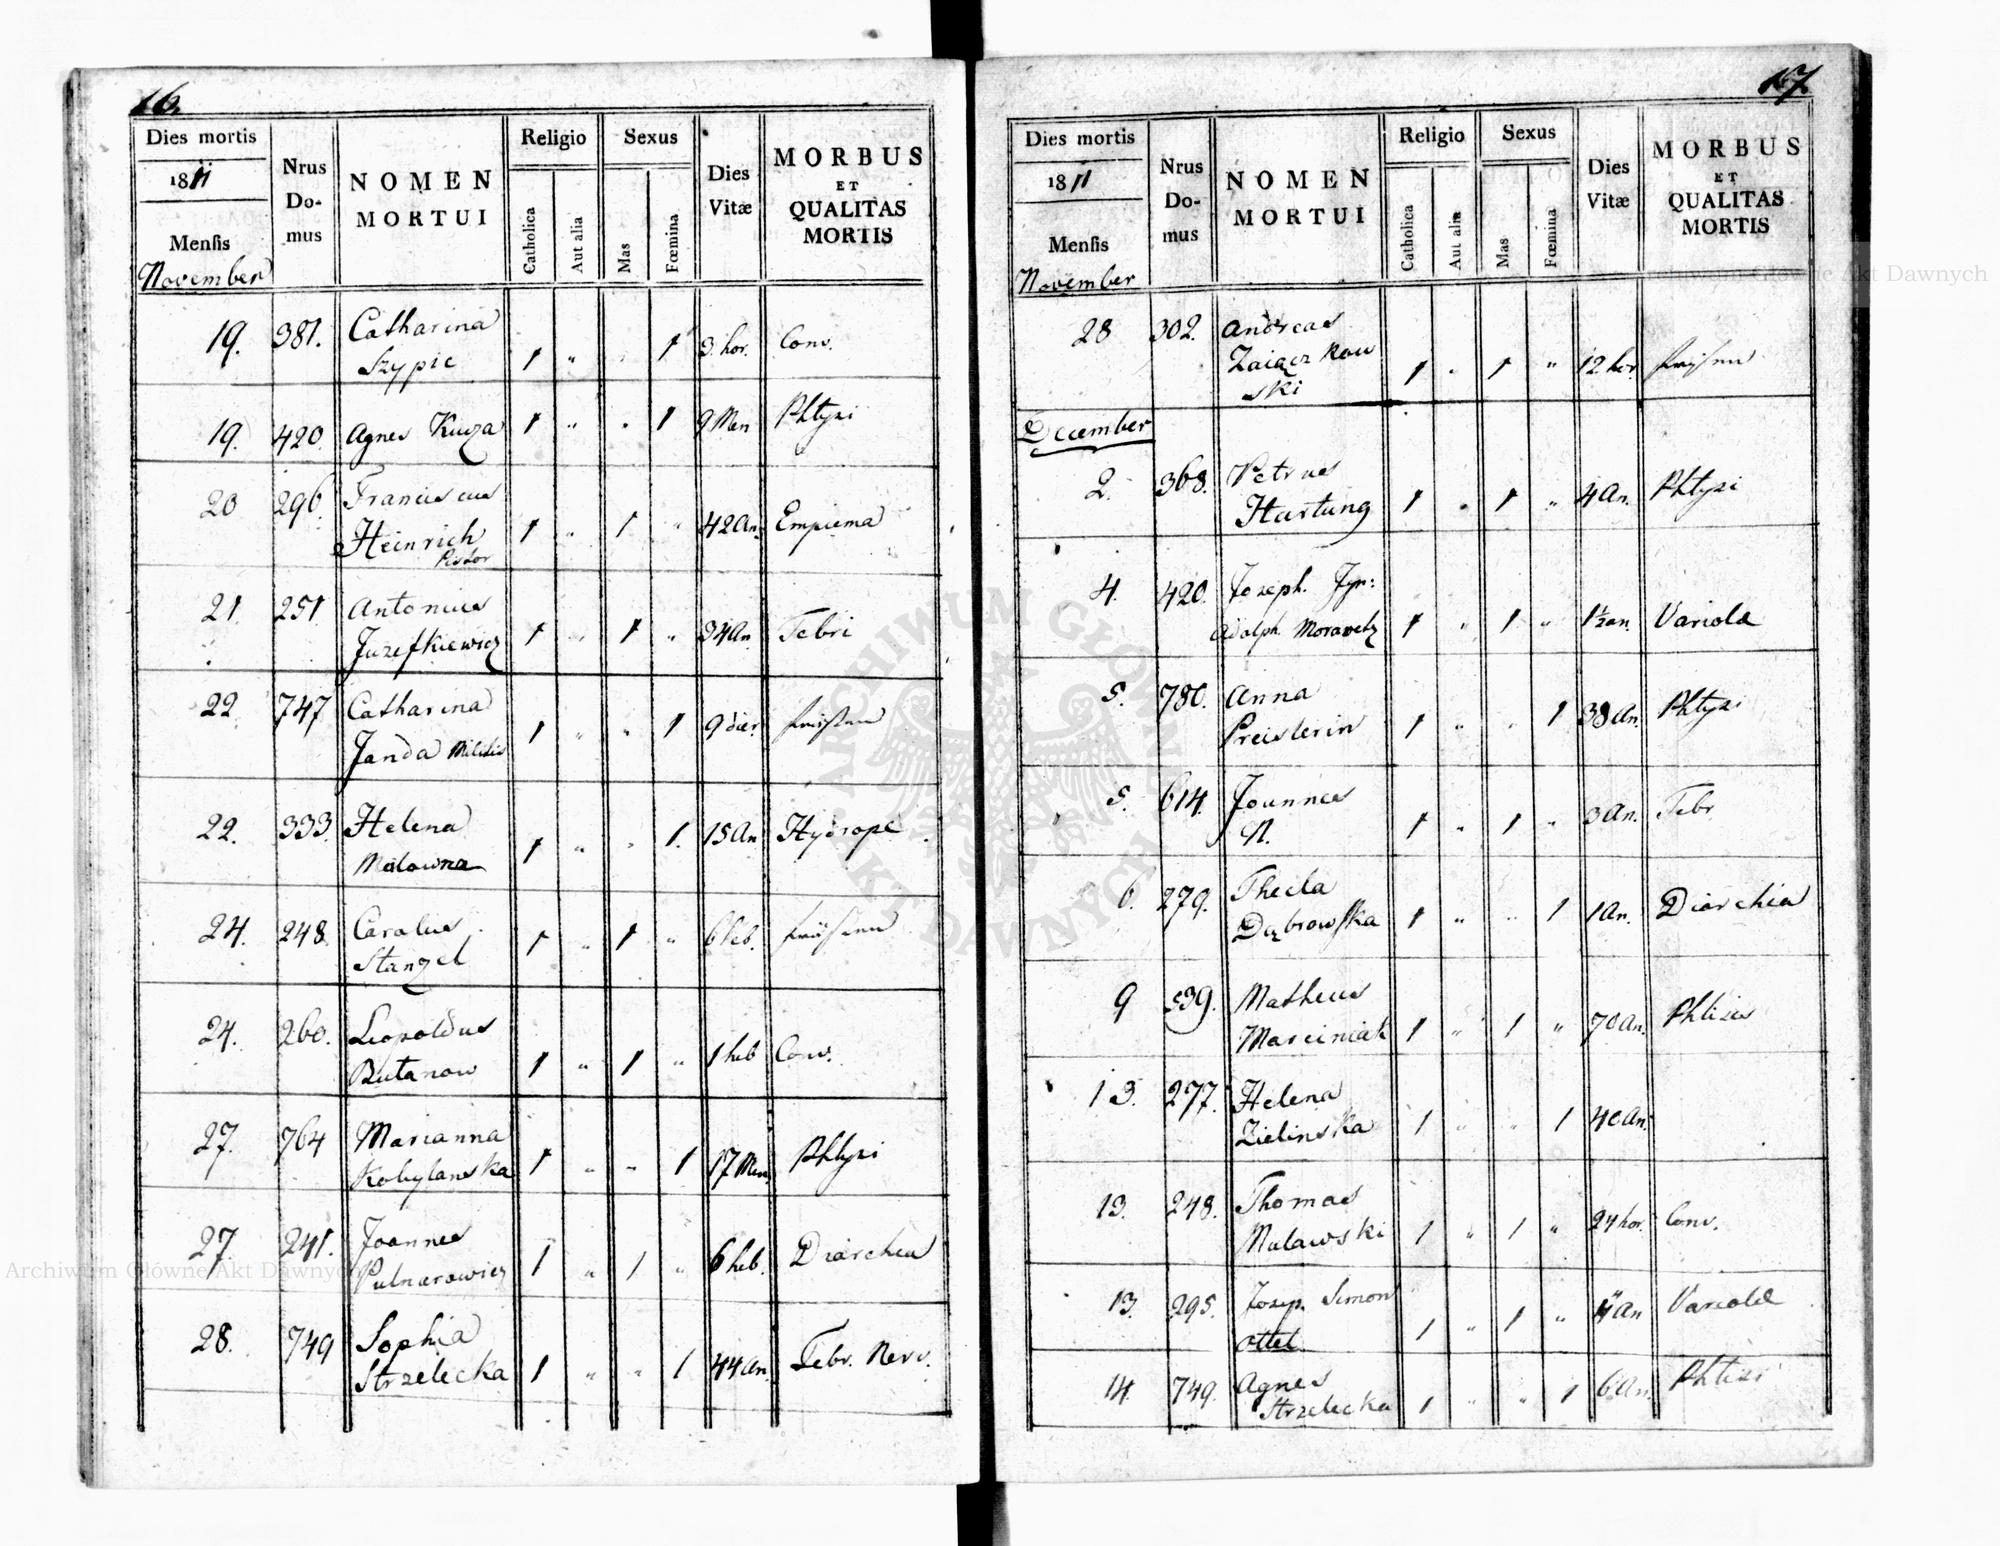 16.
Dies mortis
1811
Mensis
November
Nrus
Do-
mus
NOMEN
MORTUI
Religio
Catholica
Aut alia
Sexus
Mas
Fœmina
Dies
Vitæ
MORBUS
ET
QUALITAS
MORTIS
19. 381. Catharina
Szypic 1 " " 1 3 hor. Conv.
19. 420. Agnes Kuza 1 " " 1 9 Men Phtysi
20 296. Franciscus
Heinrich 1 " 1 " 42 An. Empiema
Pistor
21. 251 Antonius
Juzefkiewicz 1 " 1 " 34 An. Febri
22. 747 Catharina
Janda Militis 1 " " 1 9 dier.
22. 333. Helena
Malowna 1 " " 1. 15 An Hydrope
24. 248. Carolus
Stanzel 1 " 1 " 6 heb.
24. 260. Leopoldus
Butanow 1 " 1 " 1 heb Conv.
27. 764 Marianna
Kobylanska 1 " " 1 17 Men Phtysi
27. 241. Joannes
Pulnarowicz 1 " 1 " 6 heb. Diarchea
28. 749 Sophia
Strzelecka 1 " " 1 44 An. Febr. Nerv.
Archiwum Główne Akt Dawnych
17.
Dies mortis
1811
Mensis
November
Nrus
Do-
mus
NOMEN
MORTUI
Religio
Catholica
Aut alia
Sexus
Mas
Fœmina
Dies
Vitæ
MORBUS
ET
QUALITAS
MORTIS
Archiwum Główne Akt Dawnych
28 302. Andreas
Zaiączkow
ski 1 " 1 " 12 hor.
December
2. 368. Petrus
Hartung 1 " 1 " 4 An. Phtysi
4. 420. Joseph. Ign:
Adolph. Moravetz 1 " 1 " 1½ an. Variolæ
5. 780. Anna
Preislerin 1 " " 1 38 An. Phtysi
5. 614. Joannes
N. 1 " 1 " 3 An. Febr
6. 279. Thecla
Dąbrowska 1 " " 1 1 An. Diarchia
9 539. Matheus
Marciniak 1 " 1 " 70 An. Phtisis
13. 277. Helena
Zielinska 1 " " 1 40 An.
13. 248. Thomas
Malawski 1 " 1 " 24 hor. Conv.
13. 295. Josep. Simon
Ottel 1 " 1 " 4 An Variolæ
14. 749. Agnes
Strzelecka 1 " " 1 6 An. Phtisi
ARCHIWUM GŁÓWNE AKT DAWNYCH